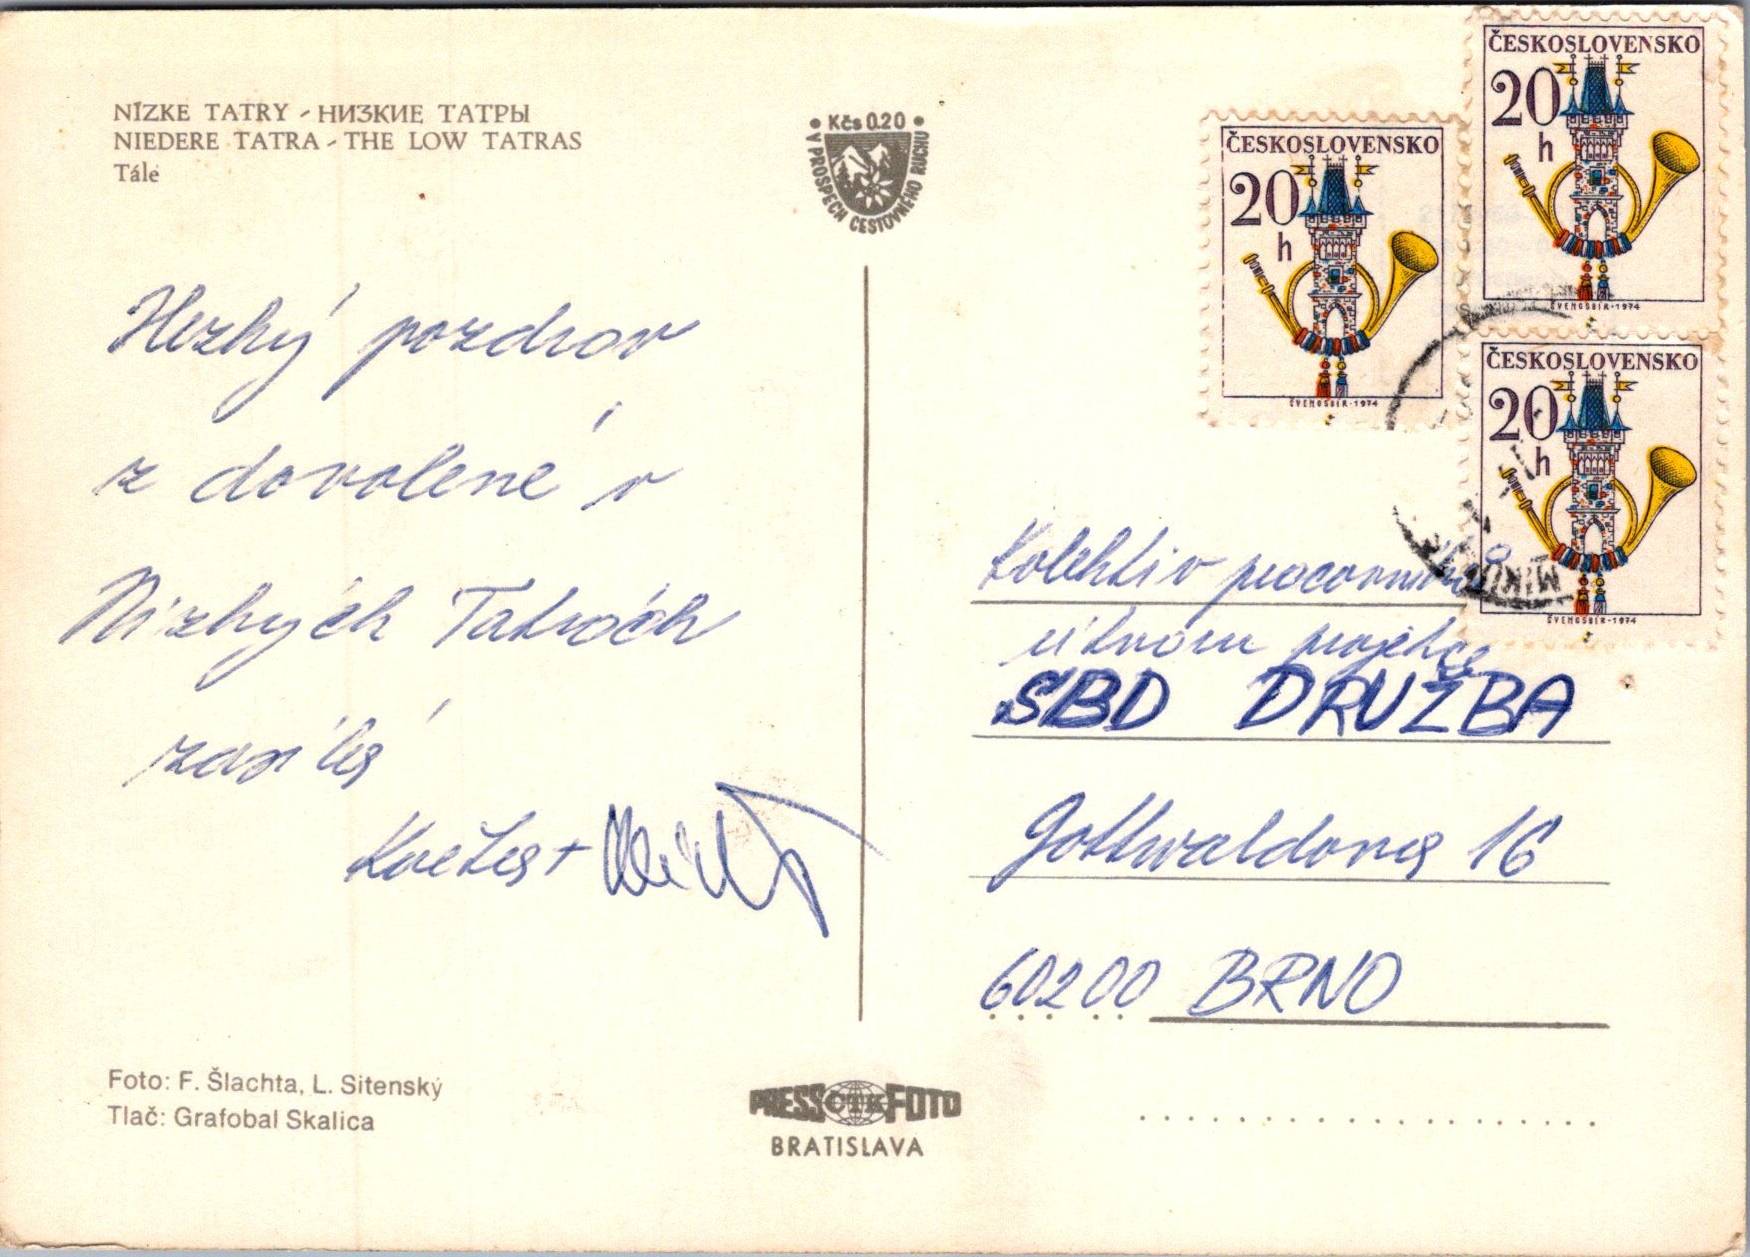 NÍZKE TATRY - НИЗКИЕ ТАТРЫ
NIEDERE TATRA - THE LOW TATRAS
Tále
• Kčs 0.20 •
V PROSPECH CESTOVNÉHO RUCHU
ČESKOSLOVENSKO
20
h
ŠVENGSBÍR - 1974
ČESKOSLOVENSKO
20
h
ŠVENGSBÍR - 1974
ČESKOSLOVENSKO
20
h
ŠVENGSBÍR - 1974
Hezký pozdrav
z dovolené v
Nízkých Tatrách
zasílá
Květa +
Kolektiv pracovníků
útvaru projekce
SBD DRUŽBA
Gottwaldova 16
60200 BRNO
Foto: F. Šlachta, L. Sitenský
Tlač: Grafobal Skalica
PRESSČTKFOTO
BRATISLAVA